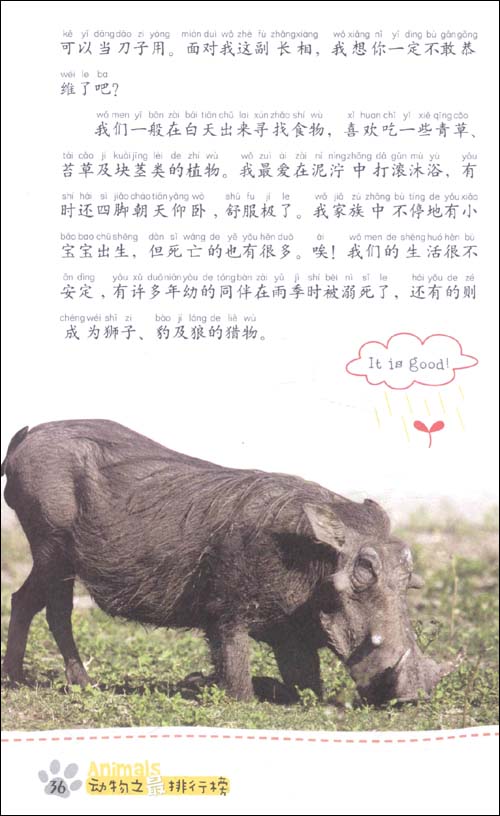 kě yǐ dāng dāo zi yòng miàn duì wǒ zhè fù zhǎngxiàng wǒ xiǎng nǐ yī dìng bù gǎn gōng
可以当刀子用。面对我这副长相，我想你一定不敢恭
wéi le ba
维了吧？
wǒ men yī bān zài bái tiān chū lai xún zhǎo shí wù xǐ huan chī yī xiē qīng cǎo
我们一般在白天出来寻找食物，喜欢吃一些青草、
tái cǎo jí kuài jīng lèi de zhí wù wǒ zuì ài zài ní nìng zhōng dǎ gǔn mù yù yǒu
苔草及块茎类的植物。我最爱在泥泞中打滚沐浴，有
shí hái sì jiǎo cháo tiān yǎng wò shū fu jí le wǒ jiā zú zhōng bù tíng de yǒu xiǎo
时还四脚朝天仰卧，舒服极了。我家族中不停地有小
bǎo bao chū shēng dàn sǐ wáng de yě yǒu hěn duō ài wǒ men de shēng huó hěn bù
宝宝出生，但死亡的也有很多。唉！我们的生活很不
ān dìng yǒu xǔ duō nián yòu de tóng bàn zài yǔ jì shí bèi nì sǐ le hái yǒu de zé
安定，有许多年幼的同伴在雨季时被溺死了，还有的则
chéng wéi shī zi bào jí láng de liè wù
成为狮子、豹及狼的猎物。
It is good!
Animals
36 动物之最排行榜